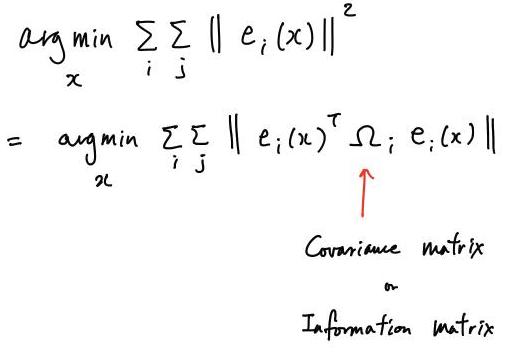 arg min Σ Σ ‖ e_i(x) ‖²
x i j
= arg min Σ Σ ‖ e_i(x)ᵀ Ω_i e_i(x) ‖
x i j
Covariance matrix
or
Information matrix